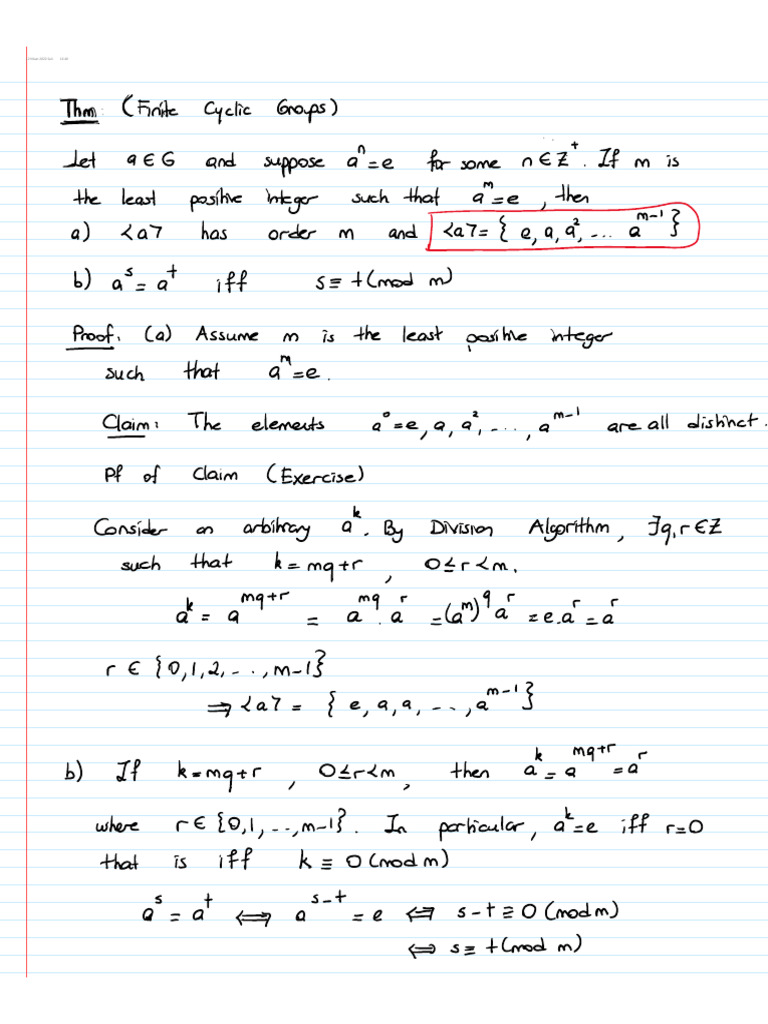 Thm: (Finite Cyclic Groups)
Let a∈G and suppose aⁿ=e for some n∈Z⁺. If m is
the least positive integer such that aᵐ=e, then
a) <a> has order m and <a>={ e, a, a², ... aᵐ⁻¹ }
b) aˢ = aᵗ iff s≡t(mod m)
Proof. (a) Assume m is the least positive integer
such that aᵐ=e.
Claim: The elements a⁰=e, a, a², ..., aᵐ⁻¹ are all distinct.
Pf of Claim (Exercise)
Consider an arbitrary aᵏ. By Division Algorithm, ∃q,r∈Z
such that k=mq+r, 0≤r<m.
aᵏ = a^(mq+r) = a^(mq) . aʳ = (aᵐ)^q aʳ = e.aʳ = aʳ
r ∈ {0,1,2,...,m-1}
⇒ <a> = { e, a, a, ..., aᵐ⁻¹}
b) If k=mq+r, 0≤r<m, then aᵏ = a^(mq+r) = aʳ
where r∈{0,1,..,m-1}. In particular, aᵏ=e iff r=0
that is iff k ≡ 0(mod m)
aˢ = aᵗ ⟺ aˢ⁻ᵗ = e ⟺ s-t≡0(mod m)
⟺ s≡t(mod m)